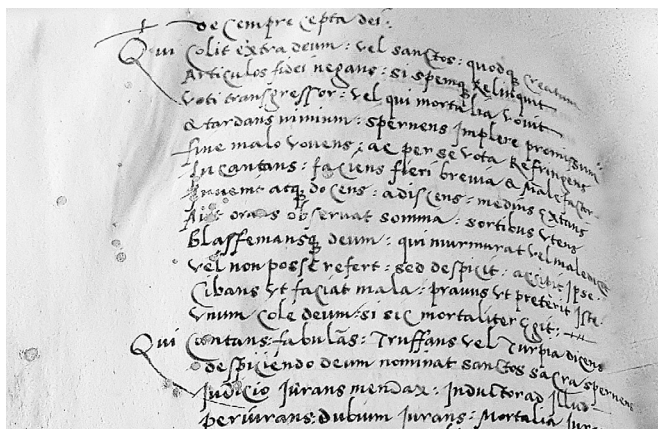 De Cempre cepta dei :
Qui Colit extra deum : vel sanctos : quodq creatum
Articulos fidei negans : si spemq Relinquit
Voti transgressor : vel qui mortalia vovit
& tardans nimium : spernens Implere promissum
fine malo vovens : ac per se vota Refringens
Incantans : faciens fieri brevia & Malefactor
atq docens : adiscens : medius extans
orans observat somma : sortibus vtens
Blassemansq deum : qui murmurat vel
vel non posse refert : sed despicit : Ipse
Cibans vt faciat mala : pravus vt preterit Iste
vnum Cole deum : si sic mortaliter Egit :
Qui Contans fabulas : Truffans vel Turpia dicens
despiciendo deum nominat sanctos sacra spernens
Judicio Jurans mendax : Inductor ad Illud
periurans : dubium Iurans : Mortalia